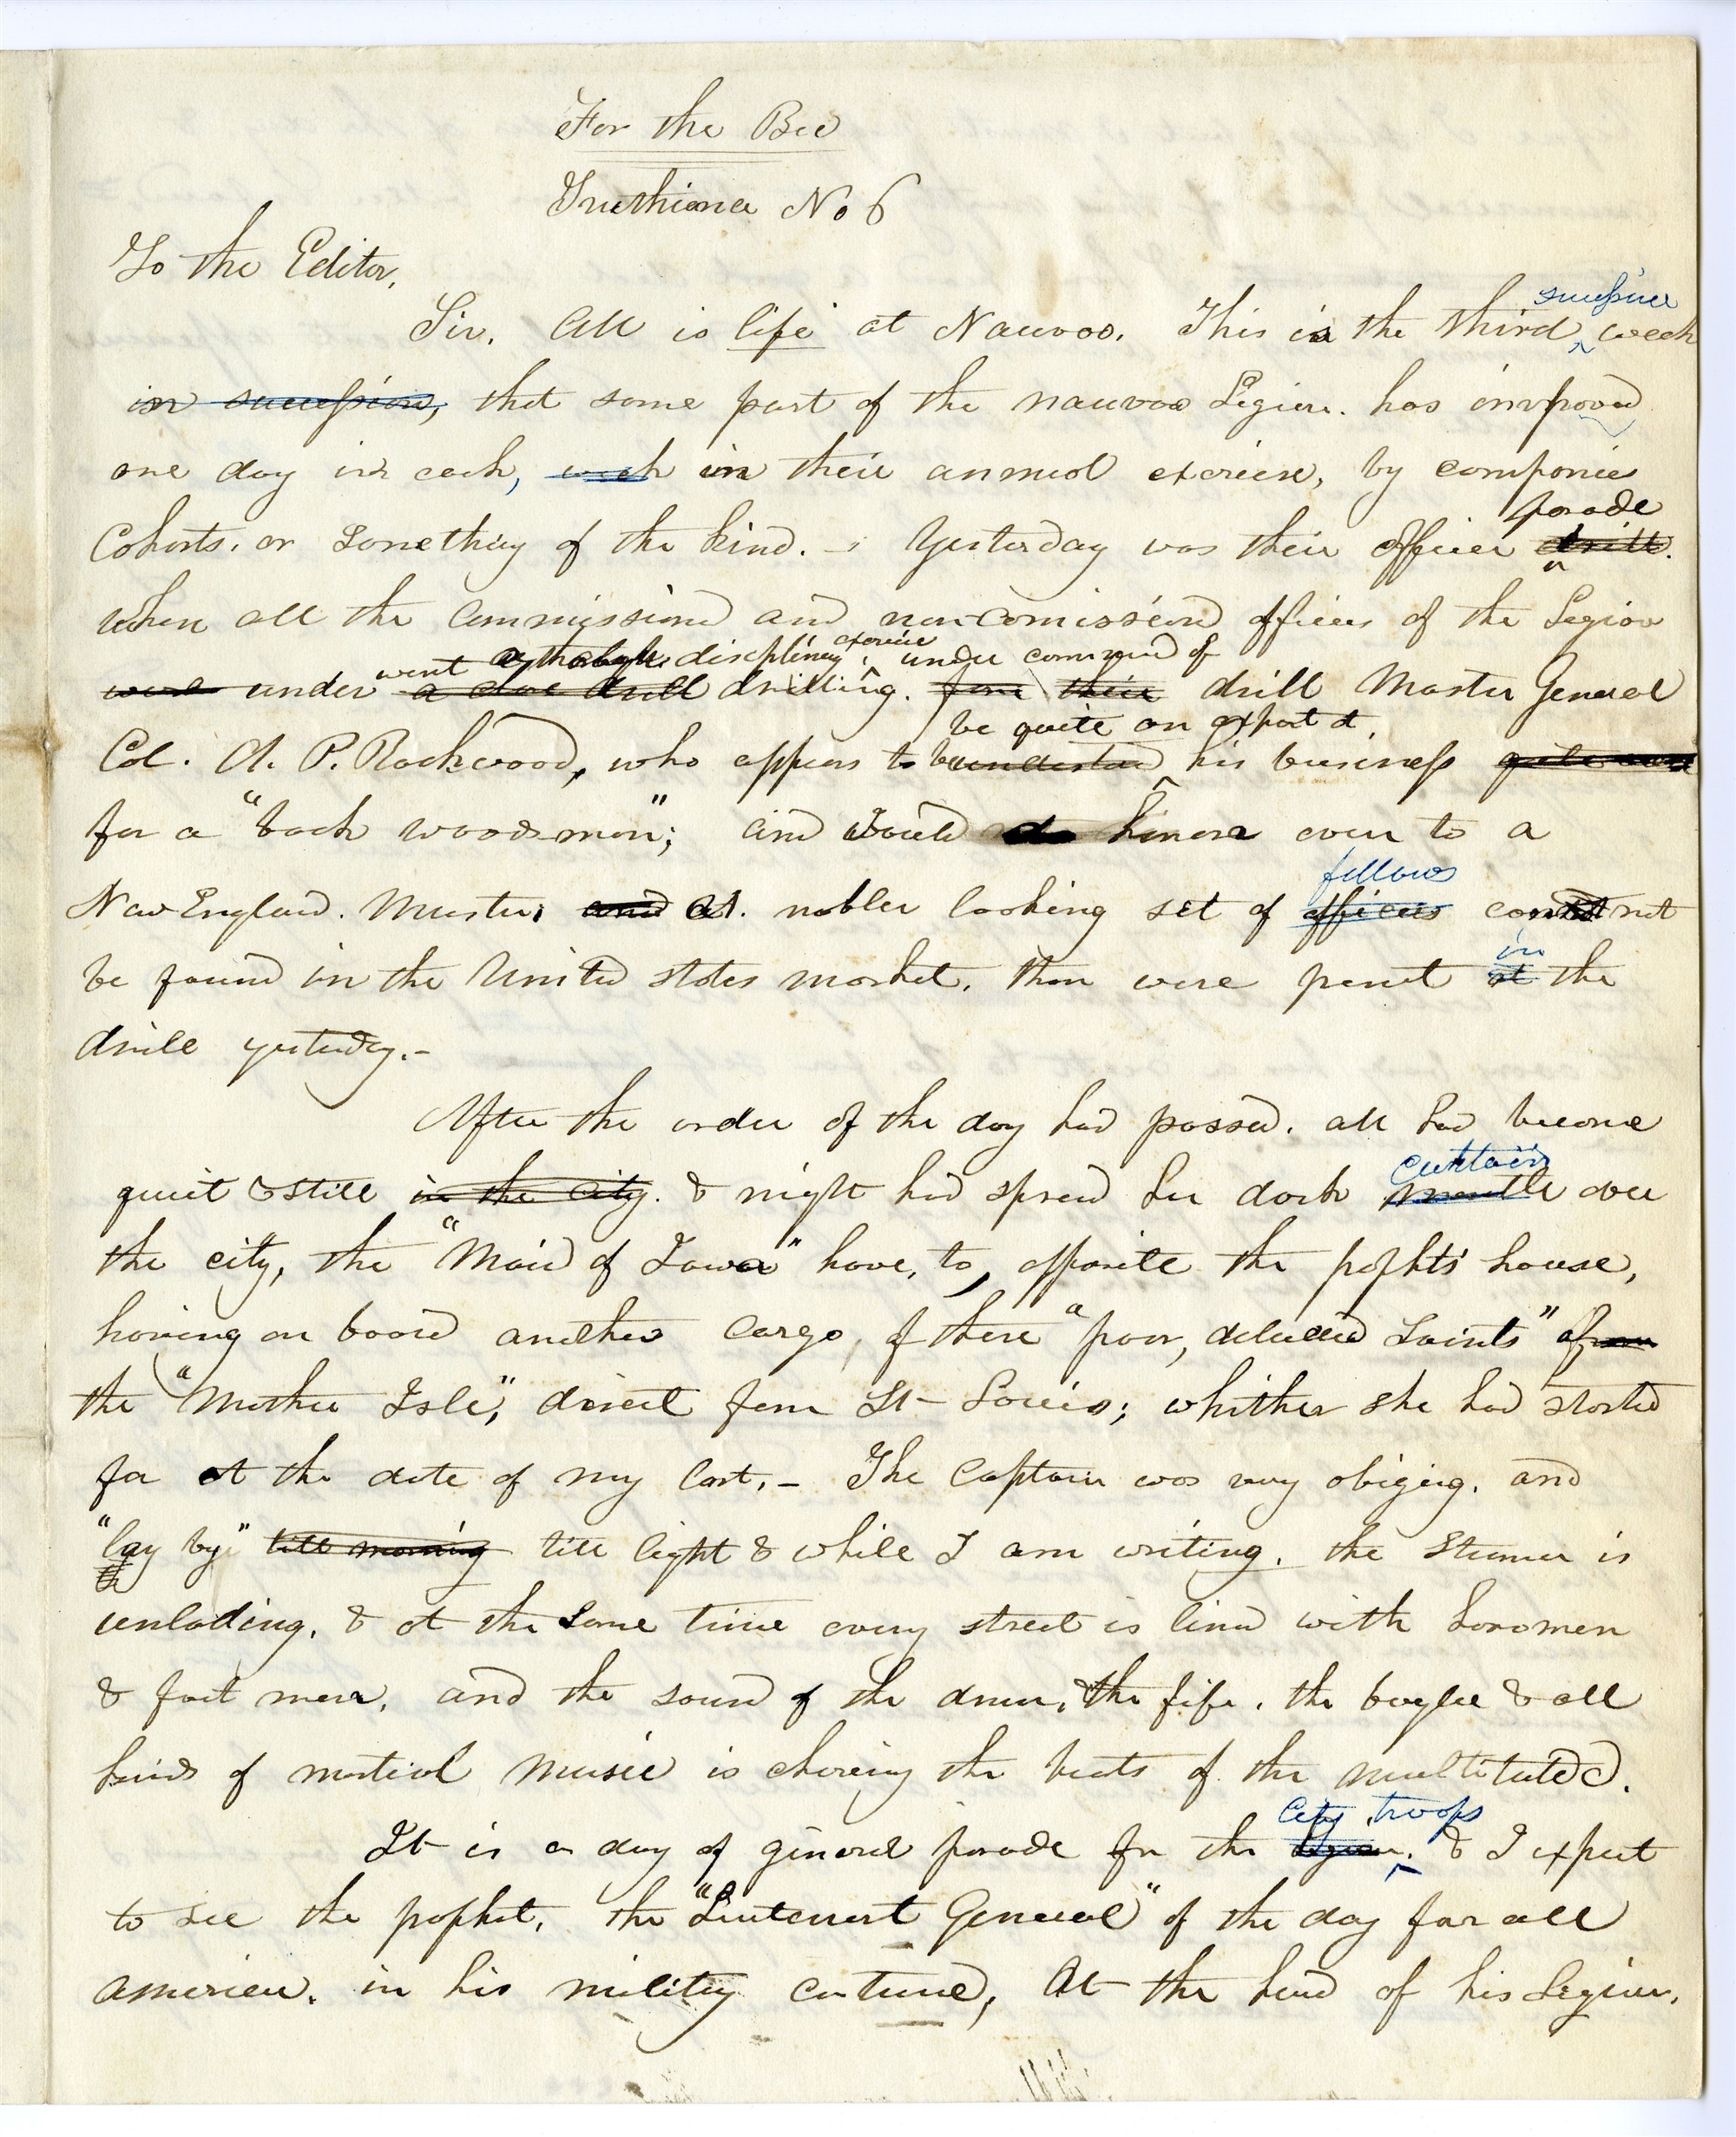 For the Bee
Truthiana No 6
To the Editor,
Sir. All is life at Nauvoo. This is the third successive week
in succession, that some part of the Nauvoo Legion. has improved
one day in each, week in their annual exercise, by companie
Cohorts. or something of the kind. - Yesterday was their officer drill. parade
when all the commissioned and non-comissioned officers of the Legion
were under went a close drill a thorough disciplinary exercise drilling. from their under command of drill Master General
Col. A. P. Rockwood, who appears to understand be quite an expert at his business
for a "back woodsman"; and would do honor even to a
New England. Muster. and A. nobler looking set of officers fellows could not
be found in the United states market. than were present at in the
drill yesterday.-
After the order of the day had passed. all had become
quiet & still in the city. & night had spread her dark mantle curtain over
the city, the "Maid of Iowa" hove, to, opposite the prophets' house,
having on board another cargo, of these "poor, deluded Saints" from
the "Mother Isle", direct from St- Louis; whither she had started
for at the date of my last.- The Captain was very obliging. and
"lay by" till morning till light & while I am writing. the steamer is
unlading. & at the same time every street is lined with horsmen
& foot men, and the sound of the drum, the fife. the bugle & all
kinds of martial music is cheering the hearts of the multituted.
It is a day of general parade for the Legion. City troops & I expect
to see the prophet. the "Lieutenant General" of the day for all
America. in his military costume, At the head of his Legion.